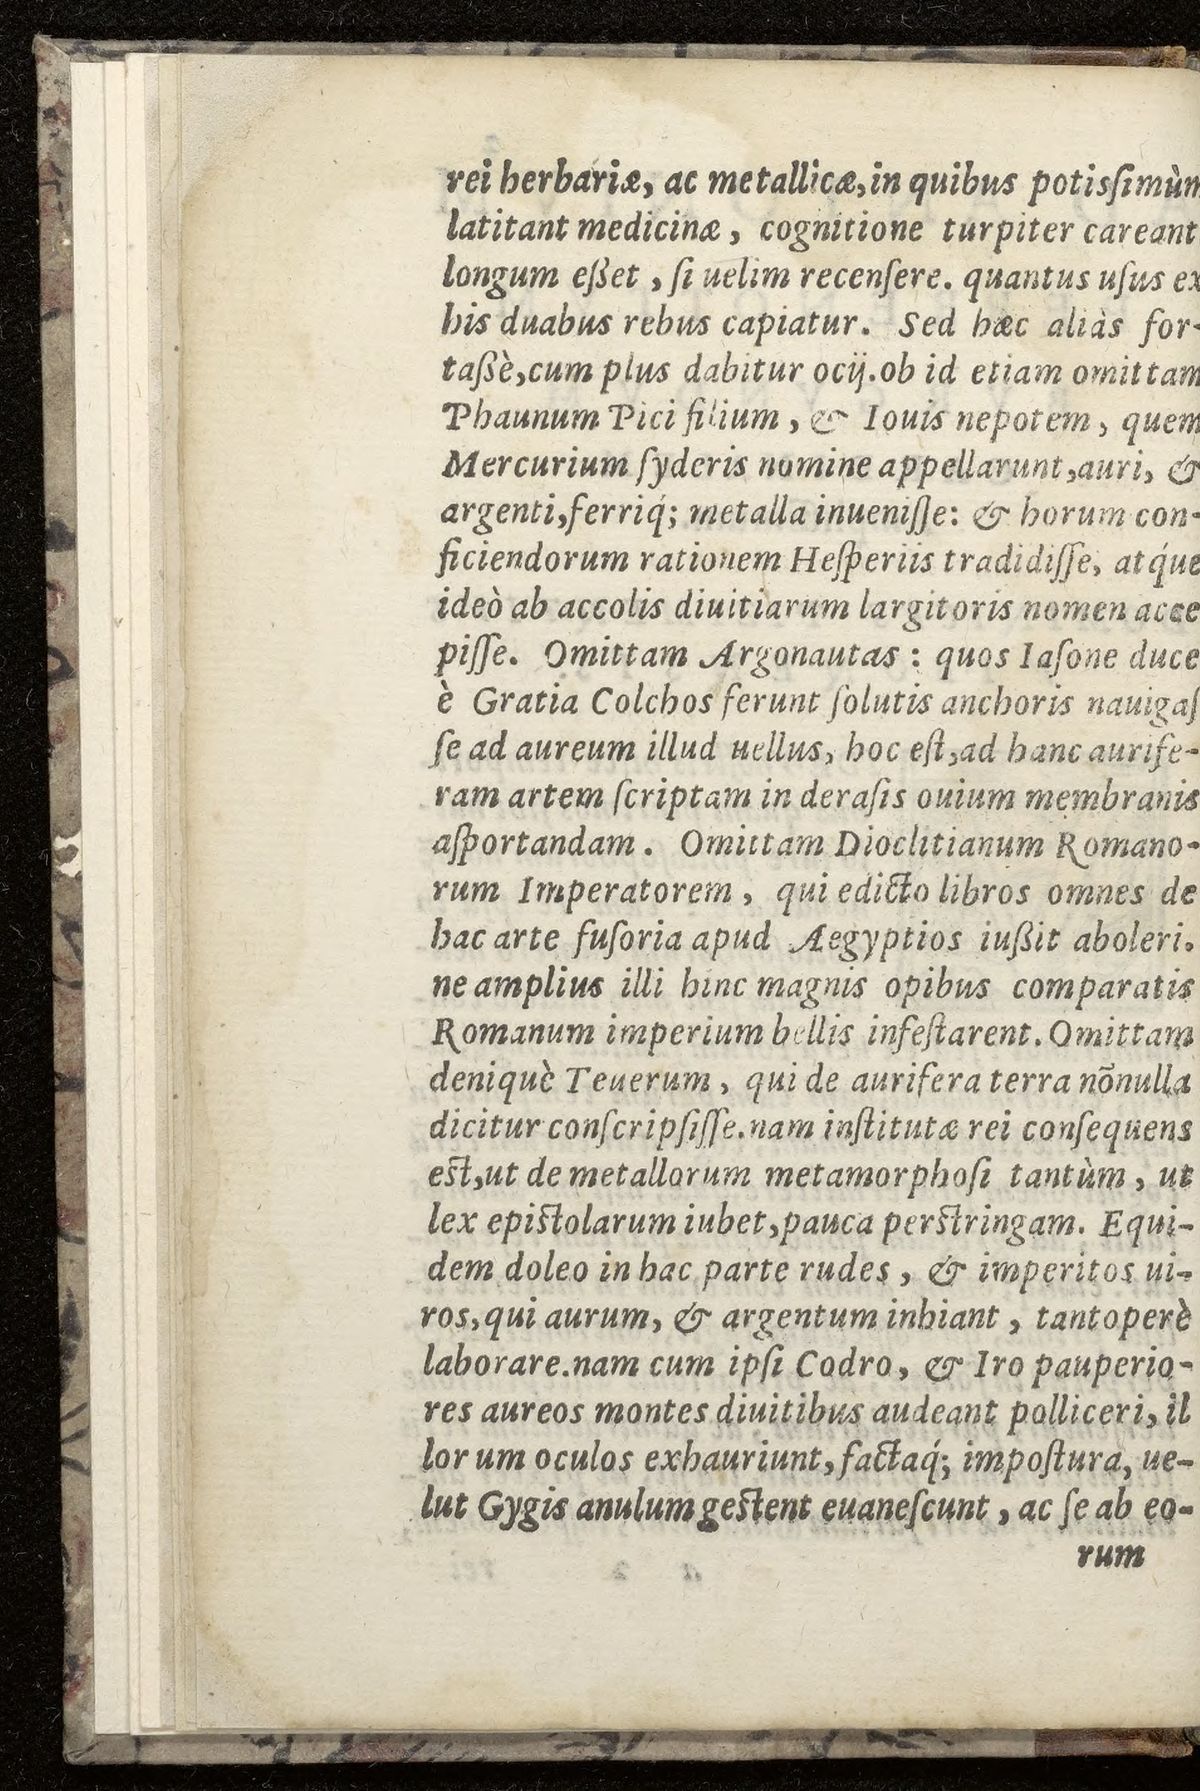 rei herbariæ, ac metallicæ, in quibus potisſimùm
latitant medicinæ, cognitione turpiter careant
longum eßet, ſi uelim recenſere. quantus uſus ex
his duabus rebus capiatur. Sed hæc aliàs for-
taßè, cum plus dabitur ocij. ob id etiam omittam
Phaunum Pici filium, & Iouis nepotem, quem
Mercurium ſyderis nomine appellarunt, auri, &
argenti, ferriq́; metalla inueniſſe: & horum con-
ficiendorum rationem Heſperiis tradidiſſe, atq́ue
ideò ab accolis diuitiarum largitoris nomen acce
piſſe. Omittam Argonautas: quos Iaſone duce
è Gratia Colchos ferunt ſolutis anchoris nauigaſ
ſe ad aureum illud uellus, hoc eſt, ad hanc aurife-
ram artem ſcriptam in deraſis ouium membranis
aſportandam. Omittam Dioclitianum Romano-
rum Imperatorem, qui edicto libros omnes de
hac arte fuſoria apud Aegyptios iußit aboleri.
ne amplius illi hinc magnis opibus comparatis
Romanum imperium bellis infeſtarent. Omittam
deniquè Teuerum, qui de aurifera terra nõnulla
dicitur conſcripſiſſe. nam inſtitutæ rei conſequens
est, ut de metallorum metamorphoſi tantùm, ut
lex epistolarum iubet, pauca perstringam. Equi-
dem doleo in hac parte rudes, & imperitos ui-
ros, qui aurum, & argentum inhiant, tantoperè
laborare. nam cum ipſi Codro, & Iro pauperio-
res aureos montes diuitibus audeant polliceri, il
lorum oculos exhauriunt, factaq́; impoſtura, ue-
lut Gygis anulum gestent euaneſcunt, ac ſe ab eo-
rum